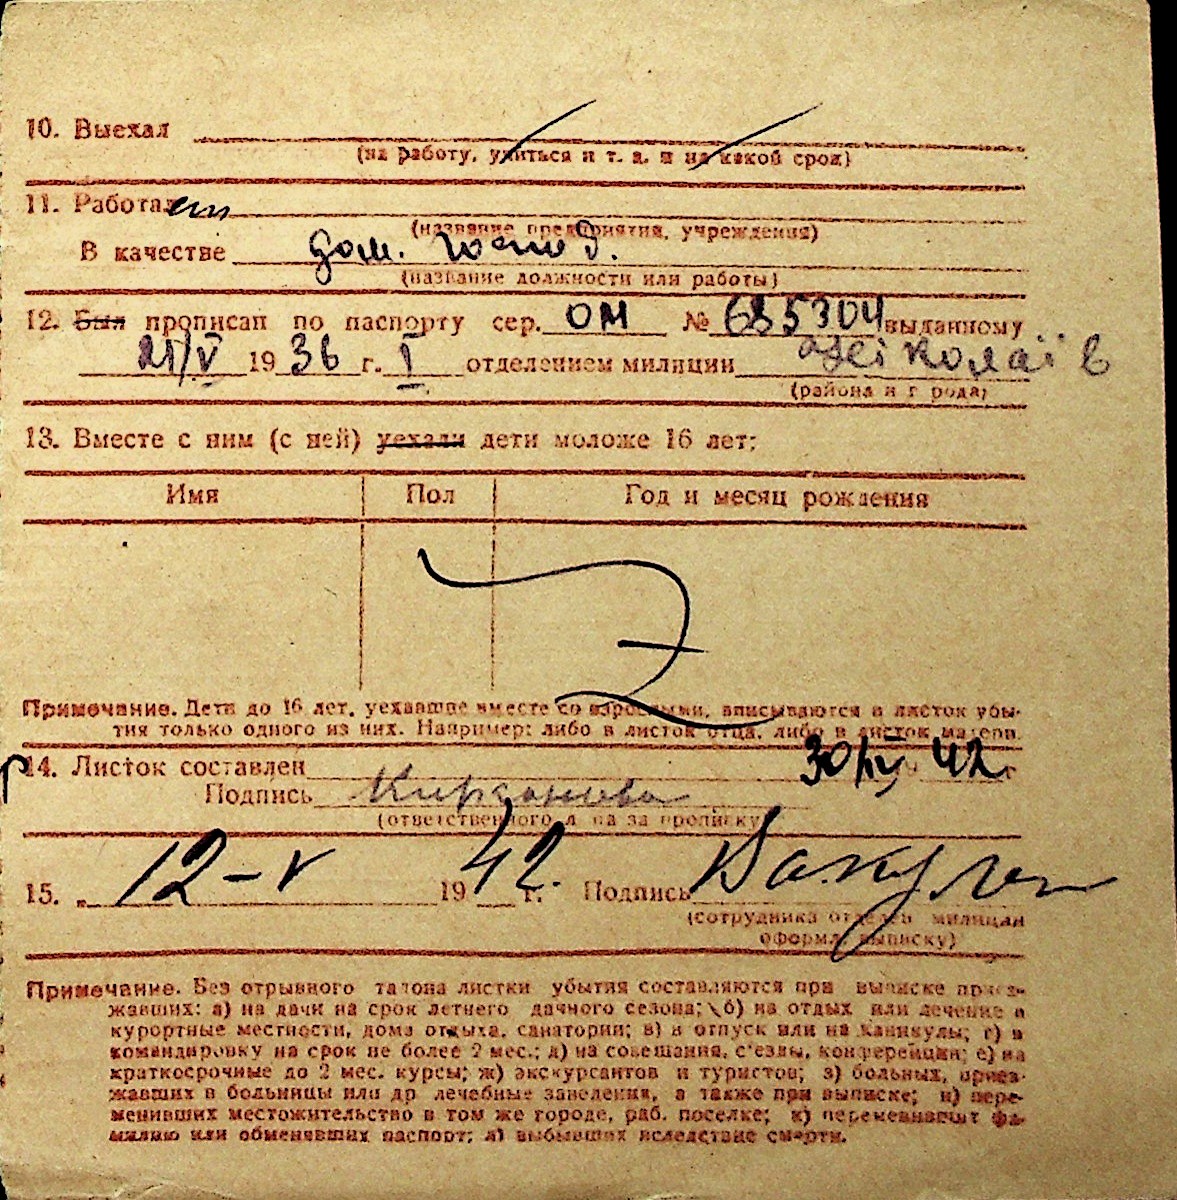 10. Выехал
(на работу, учиться и т. д. и на какой срок)
11. Работает
(название предприятия, учреждения)
В качестве дом. господ.
(название должности или работы)
12. Был прописан по паспорту сер. ОМ № 685304 выданному
21/V 1936 г. I отделением милиции Ніколаїв
(района и города)
13. Вместе с ним (с ней) уехали дети моложе 16 лет:
Имя Пол Год и месяц рождения
Примечание. Дети до 16 лет, уехавшие вместе со взрослыми, вписываются в листок убы-
тия только одного из них. Например: либо в листок отца, либо в листок матери.
14. Листок составлен 30/IV 42 г.
Подпись
(ответственного лица за прописку)
15. „ 12-V 1942 г. Подпись
(сотрудника отделен. милиции
оформл. выписку)
Примечание. Без отрывного талона листки убытия составляются при выписке приез-
жавших: а) на дачи на срок летнего дачного сезона; б) на отдых или лечение в
курортные местности, дома отдыха, санатории; в) в отпуск или на каникулы; г) в
командировку на срок не более 2 мес.; д) на совещания, с'езды, конференции; е) на
краткосрочные до 2 мес. курсы; ж) экскурсантов и туристов; з) больных, приез-
жавших в больницы или др. лечебные заведения, а также при выписке; и) пере-
менивших местожительство в том же городе, раб. поселке; к) переменивших фа-
милию или обменявших паспорт; л) выбывших вследствие смерти.